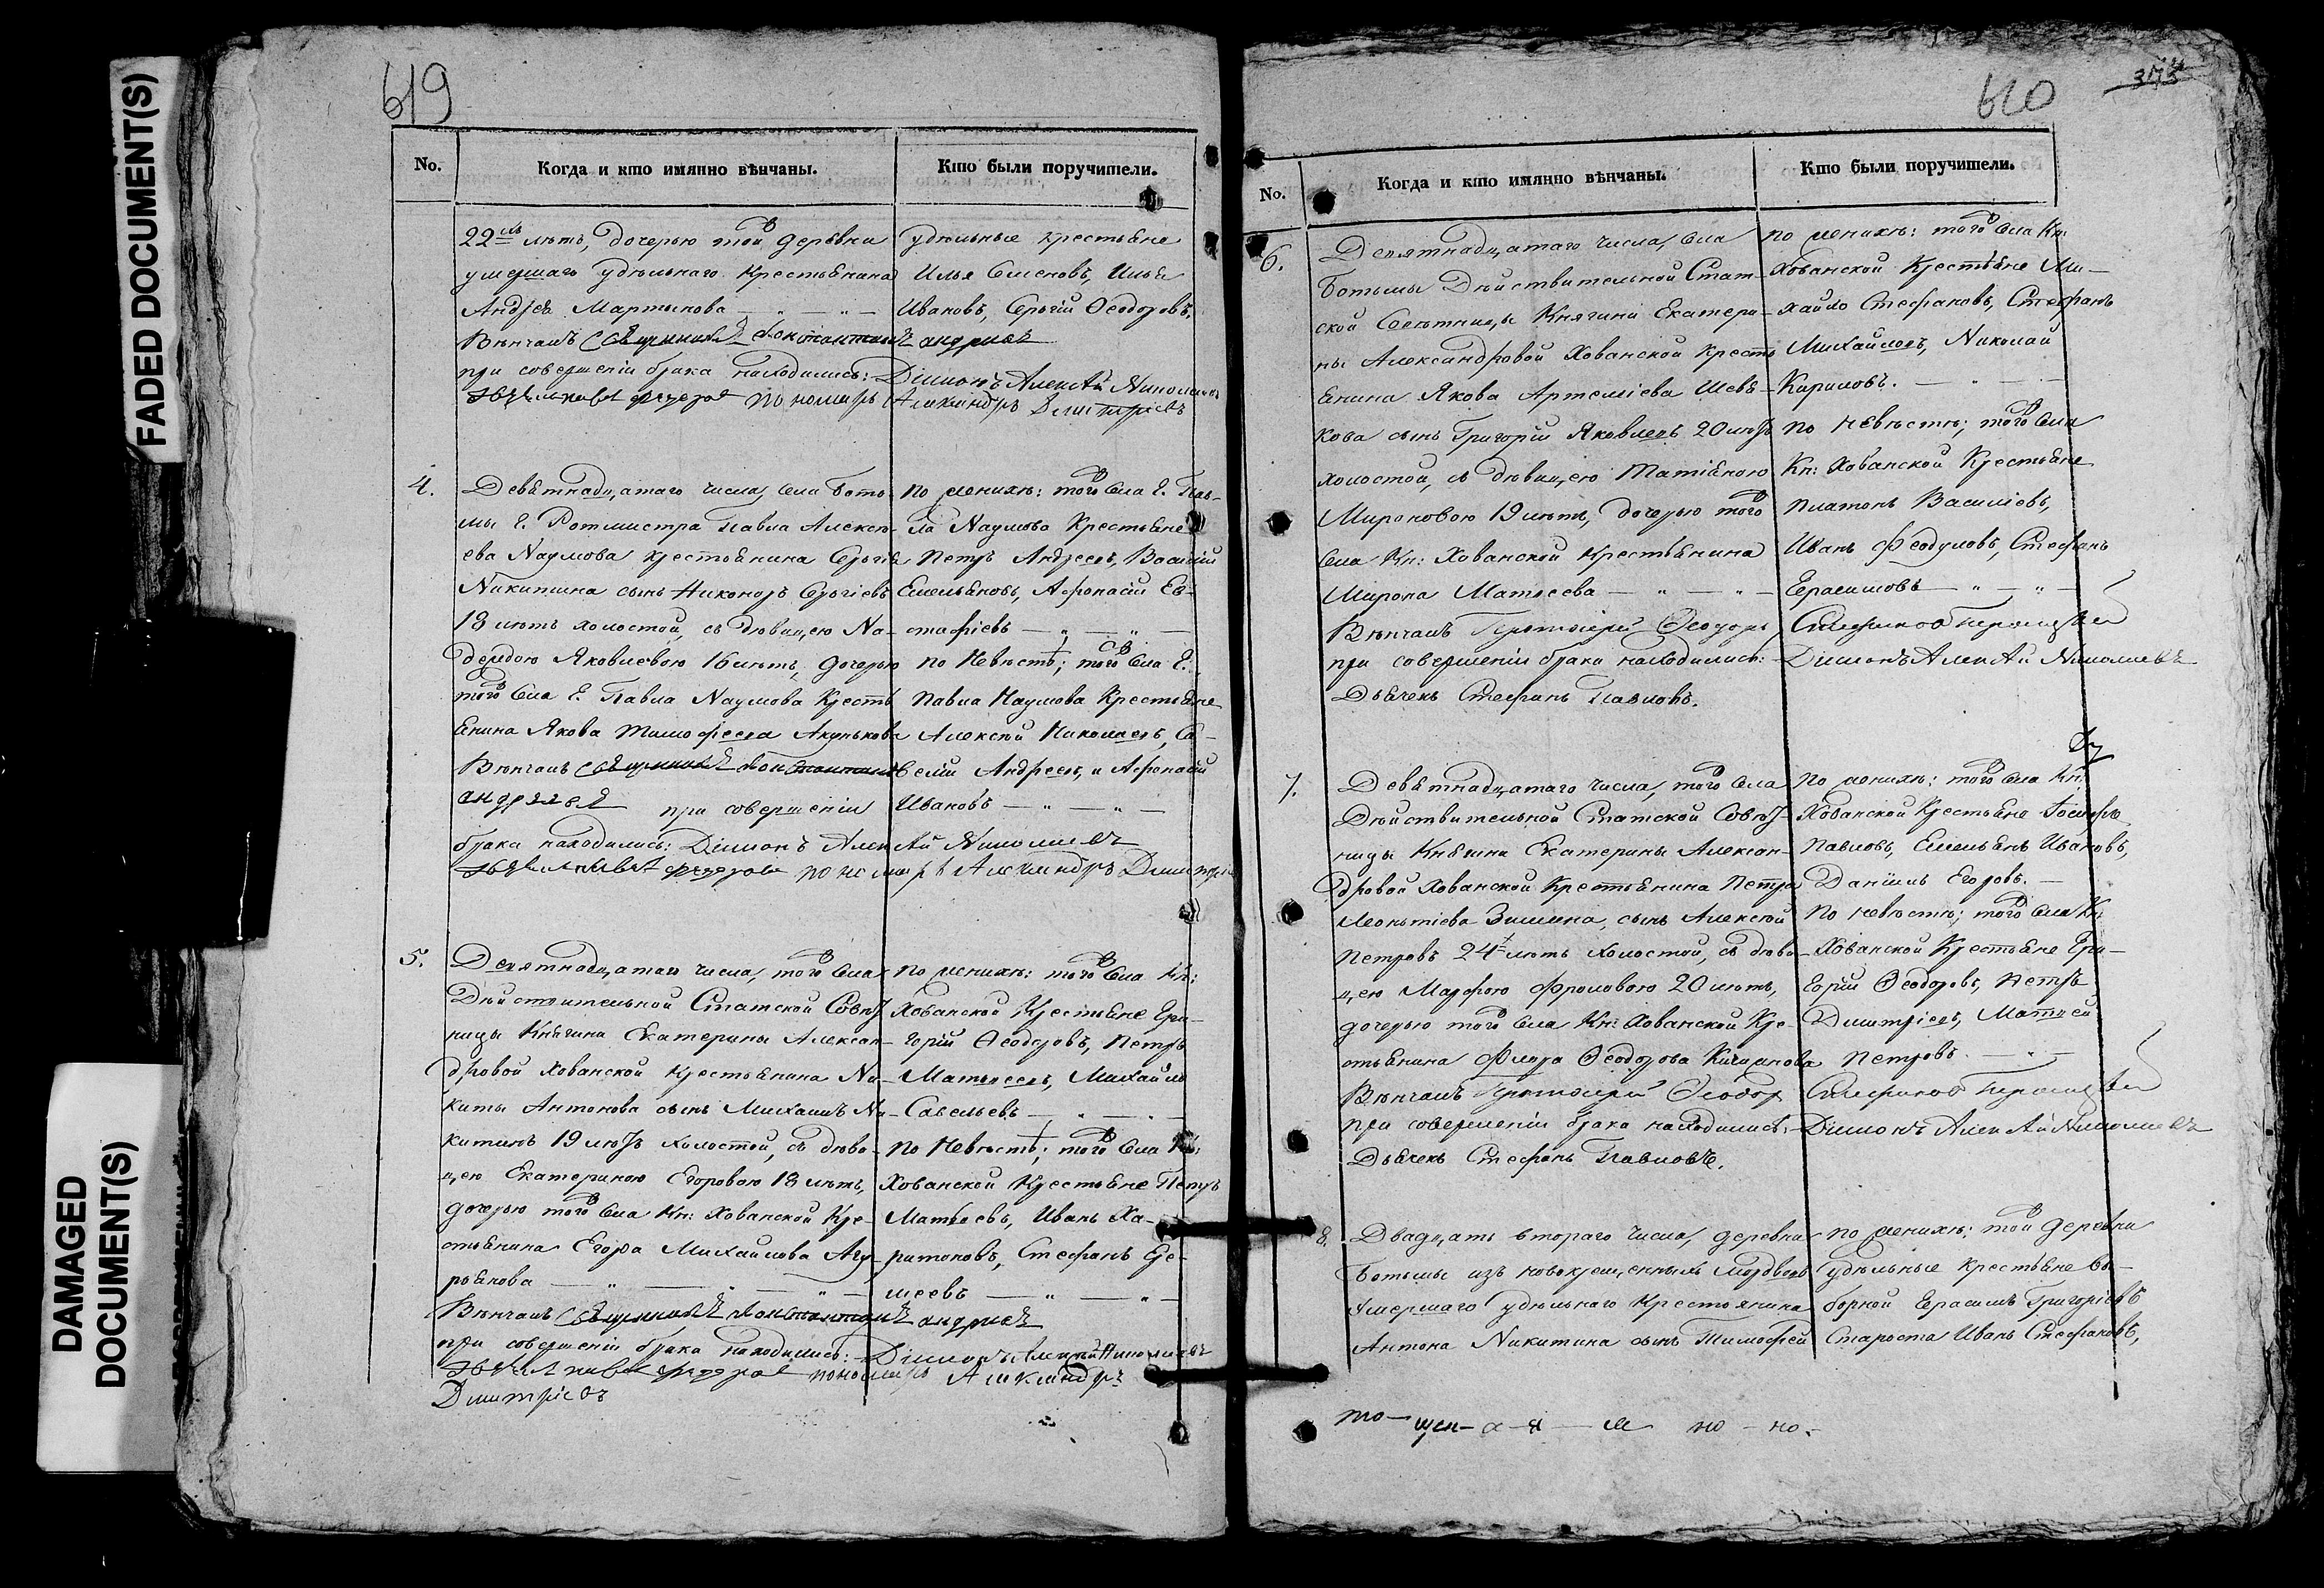 FADED DOCUMENT(S)
DAMAGED
DOCUMENT(S)
619
No.
Когда и кто имянно вѣнчаны.
Кто были поручители.
22хъ лѣтъ, дочерью той деревни
умершаго удѣльнаго крестьянина
Андрея Мартынова
Вѣнчалъ священникъ Константинъ Андреевъ
при совершеніи брака находились: Діаконъ Алексѣй Николаевъ
пономарь Александръ Димитріевъ
удѣльные крестьяне
Илья Семеновъ, Илья
Ивановъ, Сергій Ѳеодоровъ.
4.
Девятнадцатаго числа, села Боть-
мы Г. Ротмистра Павла Алексѣ-
ева Наумова крестьянина Сергія
Никитина сынъ Никаноръ Сергіевъ
18 лѣтъ холостой, съ дѣвицею На-
деждою Яковлевою 16 лѣтъ, дочерью
того села Г. Павла Наумова кресть
янина Якова Тимофеева Акунькова
Вѣнчалъ священникъ Константинъ
Андреевъ при совершеніи
брака находились: Діаконъ Алексѣй Николаевъ
пономарь Александръ Димитріевъ
по женихѣ: того села Г. Пав-
ла Наумова Крестьяне
Петръ Андреевъ, Василій
Емельяновъ, Афонасій Ев-
стафіевъ
по Невѣстѣ; того села Г.
Павла Наумова Крестьяне
Алексѣй Николаевъ, Са-
велій Андреевъ, и Афонасій
Ивановъ
5.
Девятнадцатаго числа, того села
Дѣйствительной Статской Совѣт
ницы Княгини Екатерины Алексан-
дровой Хованской крестьянина Ни-
киты Антонова сынъ Михаилъ Ни-
китинъ 19 лѣтъ холостой, съ дѣви-
цею Екатериною Егоровою 18 лѣтъ,
дочерью того села Кн: Хованской Кре-
стьянина Егора Михайлова
Вѣнчалъ священникъ Константинъ Андреевъ
при совершеніи брака находились: Діаконъ Алексѣй Николаевъ
пономарь Александръ
Димитріевъ
по женихѣ: того села Кн:
Хованской Крестьяне Гри-
горій Ѳеодоровъ, Петръ
Матвеевъ, Михайло
Савельевъ
по Невѣстѣ; того села Кн:
Хованской Крестьяне Петръ
Матвеевъ, Иванъ Ха-
ритоновъ, Стефанъ Ере-
меевъ
610
No.
Когда и кто имянно вѣнчаны.
Кто были поручители.
6.
Девятнадцатаго числа, села
Ботьмы Дѣйствительной Стат-
ской Совѣтницы Княгини Екатери-
ны Александровой Хованской кресть
янина Якова Артеміева Шевя-
кова сынъ Григорій Яковлевъ 20 лѣтъ
холостой, съ дѣвицею Татіяною
Мироновою 19 лѣтъ, дочерью того
села Кн: Хованской крестьянина
Мирона Матвеева
Вѣнчалъ Протоіерей Ѳеодоръ
при совершеніи брака находились: Діаконъ Алексѣй Николаевъ
Дьячекъ Стефанъ Павловъ.
по женихѣ: того села Кн:
Хованской Крестьяне Ми-
хайло Стефановъ, Стефанъ
Михайловъ, Николай
Кириловъ.
по невѣстѣ; того села
Кн: Хованской Крестьяне
Платонъ Василіевъ,
Иванъ Феодуловъ, Стефанъ
Герасимовъ
7.
Девятнадцатаго числа, того села
Дѣйствительной Статской Совѣт-
ницы Княгини Екатерины Алексан-
дровой Хованской крестьянина Петра
Леонтіева Зимина, сынъ Алексѣй
Петровъ 24 лѣтъ холостой, съ дѣви-
цею Марфою Фроловою 20 лѣтъ,
дочерью того села Кн: Хованской Кре-
стьянина Флора Ѳеодорова
Вѣнчалъ Протоіерей Ѳеодоръ
при совершеніи брака находились: Діаконъ Алексѣй Николаевъ
Дьячекъ Стефанъ Павловъ.
по женихѣ: того села Кн:
Хованской Крестьяне Іосифъ
Павловъ, Емельянъ Ивановъ,
Даніилъ Егоровъ.
по невѣстѣ; того села Кн
Хованской Крестьяне Гри-
горій Ѳеодоровъ, Петръ
Димитріевъ, Матвей
Петровъ.
8.
Двадцать втораго числа, деревни
Ботьмы изъ новокрещенныхъ мордвовъ
умершаго удѣльнаго крестьянина
Антона Никитина сынъ Тимофей
по женихѣ: той деревни
удѣльные крестьяне вы-
борной Герасимъ Григоріевъ
Староста Иванъ Стефановъ,